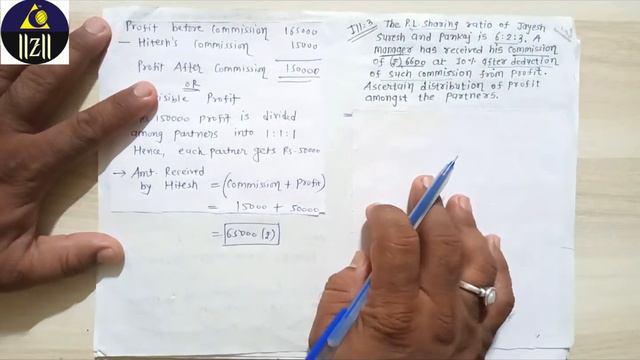 Profit before Commission 165000
- Hitesh's Commission 15000
Profit After Commission 150000
OR
visible Profit
150000 profit is divided
among partners into 1:1:1
Hence, each partner gets Rs. 50000
→ Amt. Received
by Hitesh = (Commission + Profit)
= 15000 + 50000
= 65000 (₹)
Ill:3 The P.L sharing ratio of Jayesh
Suresh and Pankaj is 6:2:3. A
manager has received his commission
of (₹) 6600 at 10% after deduction
of such commission from profit.
Ascertain distribution of profit
amongst the partners.
=